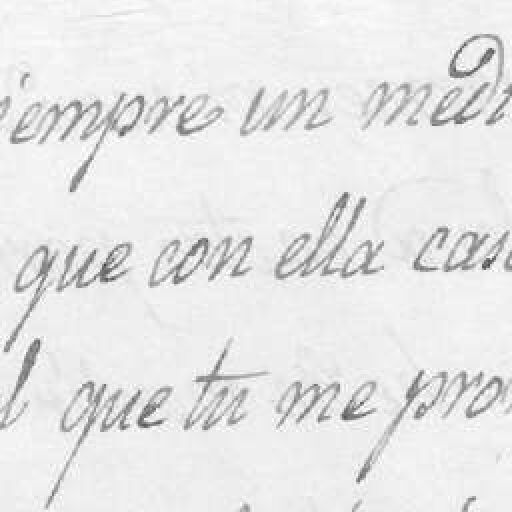 siempre un medi
que con ella cas
l que tu me pro